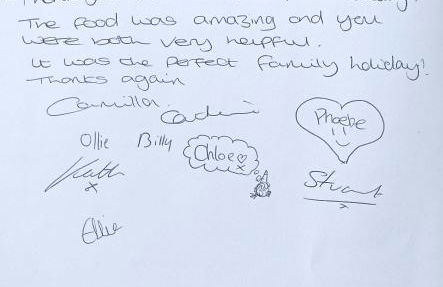 The food was amazing and you
were both very helpful.
It was the perfect family holiday!
Thanks again
Camilla
Phoebe
Ollie Billy Chloe
Stuart
Ellie